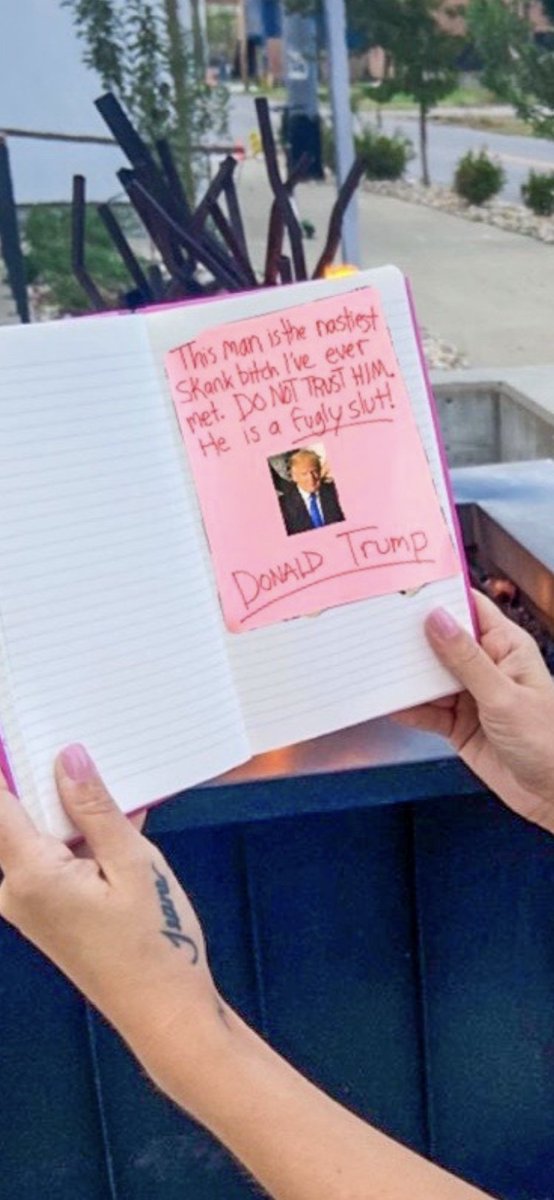 This man is the nastiest
skank bitch I've ever
met. DO NOT TRUST HIM.
He is a fugly slut!
DONALD Trump
Jeane